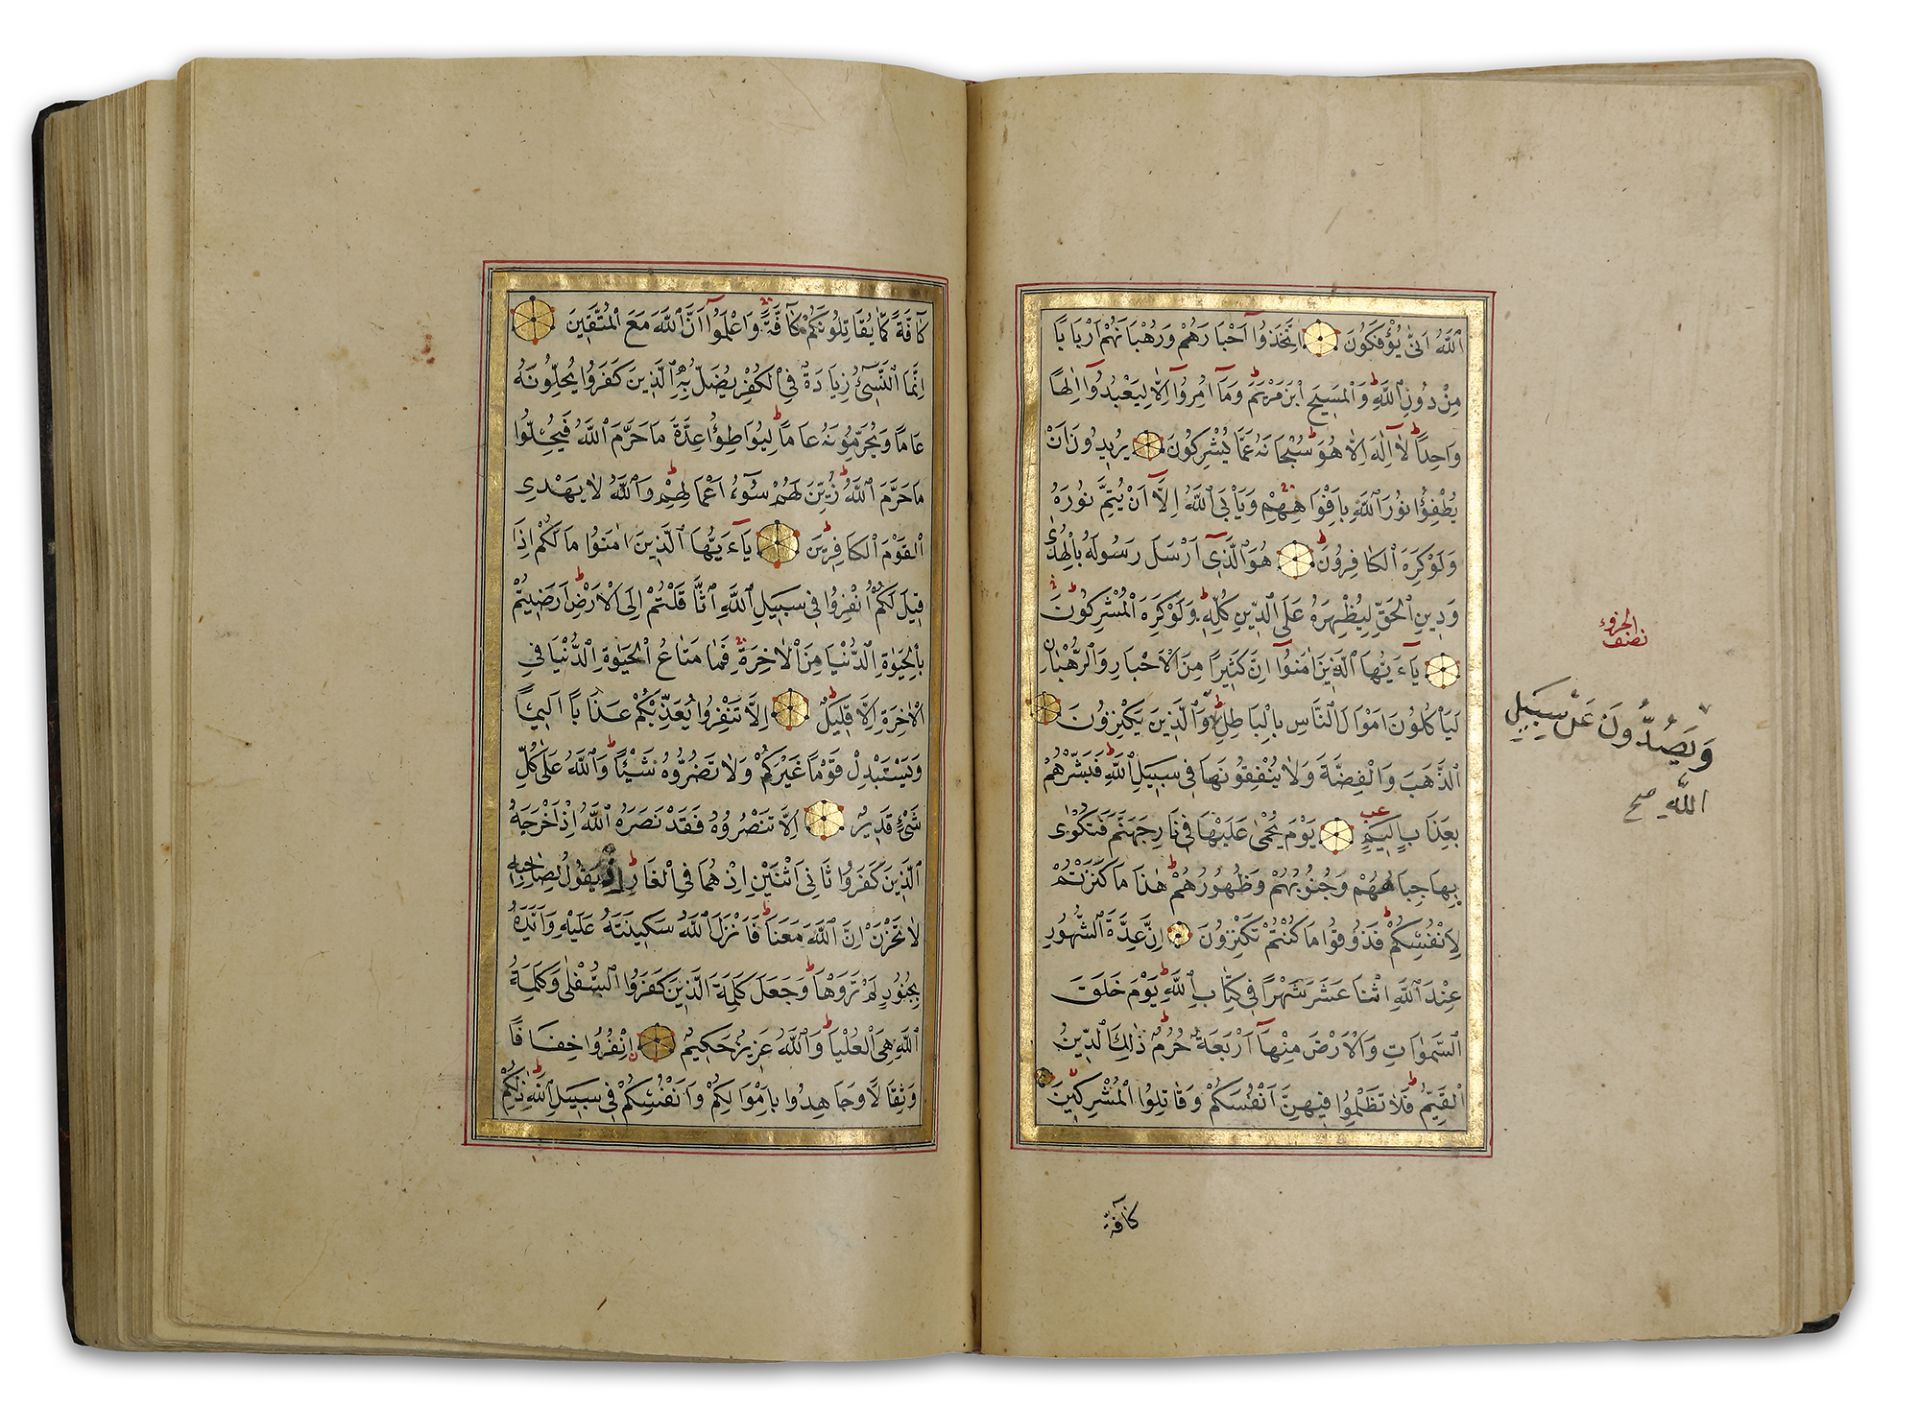 اللّٰهُ اَنّٰى يُؤْفَكُونَ اِتَّخَذُوا اَحْبَارَهُمْ وَرُهْبَانَهُمْ اَرْبَابًا
مِنْ دُونِ اللّٰهِ وَالْمَسِيحَ ابْنَ مَرْيَمَ وَمَا اُمِرُوا اِلَّا لِيَعْبُدُوا اِلٰهًا
وَاحِدًا لَا اِلٰهَ اِلَّا هُوَ سُبْحَانَهُ عَمَّا يُشْرِكُونَ يُرِيدُونَ اَنْ
يُطْفِؤُا نُورَ اللّٰهِ بِاَفْوَاهِهِمْ وَيَاْبَى اللّٰهُ اِلَّا اَنْ يُتِمَّ نُورَهُ
وَلَوْ كَرِهَ الْكَافِرُونَ هُوَ الَّذِى اَرْسَلَ رَسُولَهُ بِالْهُدٰى
وَدِينِ الْحَقِّ لِيُظْهِرَهُ عَلَى الدِّينِ كُلِّهِ وَلَوْ كَرِهَ الْمُشْرِكُونَ
يَآءَيُّهَا الَّذِينَ اٰمَنُوا اِنَّ كَثِيرًا مِنَ الْاَحْبَارِ وَالرُّهْبَانِ
لَيَاْكُلُونَ اَمْوَالَ النَّاسِ بِالْبَاطِلِ وَالَّذِينَ يَكْنِزُونَ
الذَّهَبَ وَالْفِضَّةَ وَلَا يُنْفِقُونَهَا فِى سَبِيلِ اللّٰهِ فَبَشِّرْهُمْ
بِعَذَابٍ اَلِيمٍ عب يَوْمَ يُحْمٰى عَلَيْهَا فِى نَارِ جَهَنَّمَ فَتُكْوٰى
بِهَا جِبَاهُهُمْ وَجُنُوبُهُمْ وَظُهُورُهُمْ هٰذَا مَا كَنَزْتُمْ
لِاَنْفُسِكُمْ فَذُوقُوا مَا كُنْتُمْ تَكْنِزُونَ اِنَّ عِدَّةَ الشُّهُورِ
عِنْدَ اللّٰهِ اثْنَا عَشَرَ شَهْرًا فِى كِتَابِ اللّٰهِ يَوْمَ خَلَقَ
السَّمٰوَاتِ وَالْاَرْضَ مِنْهَا اَرْبَعَةٌ حُرُمٌ ذٰلِكَ الدِّينُ
الْقَيِّمُ فَلَا تَظْلِمُوا فِيهِنَّ اَنْفُسَكُمْ وَقَاتِلُوا الْمُشْرِكِينَ
كَآفَّةً
نصف الجزء
وَيَصُدُّونَ عَنْ سَبِيلِ
اللّٰهِ صح
كَآفَّةً كَمَا يُقَاتِلُونَكُمْ كَآفَّةً وَاعْلَمُوا اَنَّ اللّٰهَ مَعَ الْمُتَّقِينَ
اِنَّمَا النَّسِىءُ زِيَادَةٌ فِى الْكُفْرِ يُضَلُّ بِهِ الَّذِينَ كَفَرُوا يُحِلُّونَهُ
عَامًا وَيُحَرِّمُونَهُ عَامًا لِيُوَاطِؤُا عِدَّةَ مَا حَرَّمَ اللّٰهُ فَيُحِلُّوا
مَا حَرَّمَ اللّٰهُ زُيِّنَ لَهُمْ سُوءُ اَعْمَالِهِمْ وَاللّٰهُ لَا يَهْدِى
الْقَوْمَ الْكَافِرِينَ يَآءَيُّهَا الَّذِينَ اٰمَنُوا مَا لَكُمْ اِذَا
قِيلَ لَكُمُ انْفِرُوا فِى سَبِيلِ اللّٰهِ اثَّاقَلْتُمْ اِلَى الْاَرْضِ اَرَضِيتُمْ
بِالْحَيٰوةِ الدُّنْيَا مِنَ الْاٰخِرَةِ فَمَا مَتَاعُ الْحَيٰوةِ الدُّنْيَا فِى
الْاٰخِرَةِ اِلَّا قَلِيلٌ اِلَّا تَنْفِرُوا يُعَذِّبْكُمْ عَذَابًا اَلِيمًا
وَيَسْتَبْدِلْ قَوْمًا غَيْرَكُمْ وَلَا تَضُرُّوهُ شَيْئًا وَاللّٰهُ عَلٰى كُلِّ
شَىْءٍ قَدِيرٌ اِلَّا تَنْصُرُوهُ فَقَدْ نَصَرَهُ اللّٰهُ اِذْ اَخْرَجَهُ
الَّذِينَ كَفَرُوا ثَانِىَ اثْنَيْنِ اِذْ هُمَا فِى الْغَارِ اِذْ يَقُولُ لِصَاحِبِهِ
لَا تَحْزَنْ اِنَّ اللّٰهَ مَعَنَا فَاَنْزَلَ اللّٰهُ سَكِينَتَهُ عَلَيْهِ وَاَيَّدَهُ
بِجُنُودٍ لَمْ تَرَوْهَا وَجَعَلَ كَلِمَةَ الَّذِينَ كَفَرُوا السُّفْلٰى وَكَلِمَةُ
اللّٰهِ هِىَ الْعُلْيَا وَاللّٰهُ عَزِيزٌ حَكِيمٌ اِنْفِرُوا خِفَافًا
وَثِقَالًا وَجَاهِدُوا بِاَمْوَالِكُمْ وَاَنْفُسِكُمْ فِى سَبِيلِ اللّٰهِ ذٰلِكُمْ